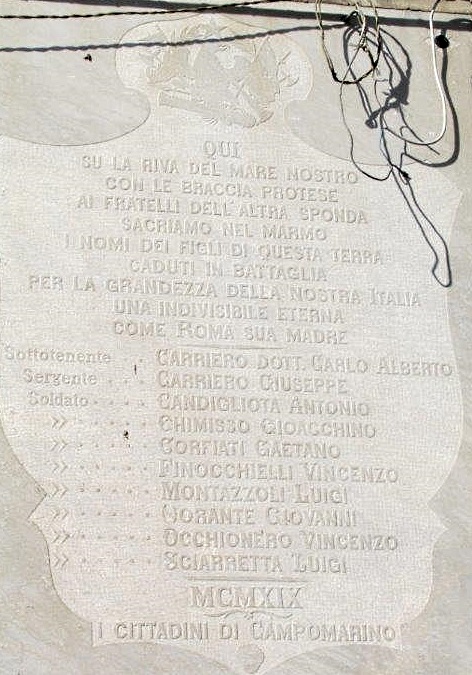 QUI
SU LA RIVA DEL MARE NOSTRO
CON LE BRACCIA PROTESE
AI FRATELLI DELL'ALTRA SPONDA
SACRIAMO NEL MARMO
I NOMI DEI FIGLI DI QUESTA TERRA
CADUTI IN BATTAGLIA
PER LA GRANDEZZA DELLA NOSTRA ITALIA
UNA INDIVISIBILE ETERNA
COME ROMA SUA MADRE
Sottotenente . CARRIERO DOTT. CARLO ALBERTO
Sergente . . . CARRIERO GIUSEPPE
Soldato . . . . CANDIGLIOTA ANTONIO
» . . . . . CHIMISSO GIOACCHINO
» . . . . . CORFIATI GAETANO
» . . . . . FINOCCHIELLI VINCENZO
» . . . . . MONTAZZOLI LUIGI
» . . . . . NORANTE GIOVANNI
» . . . . . OCCHIONERO VINCENZO
» . . . . . SCIARRETTA LUIGI
MCMXIX
I CITTADINI DI CAMPOMARINO